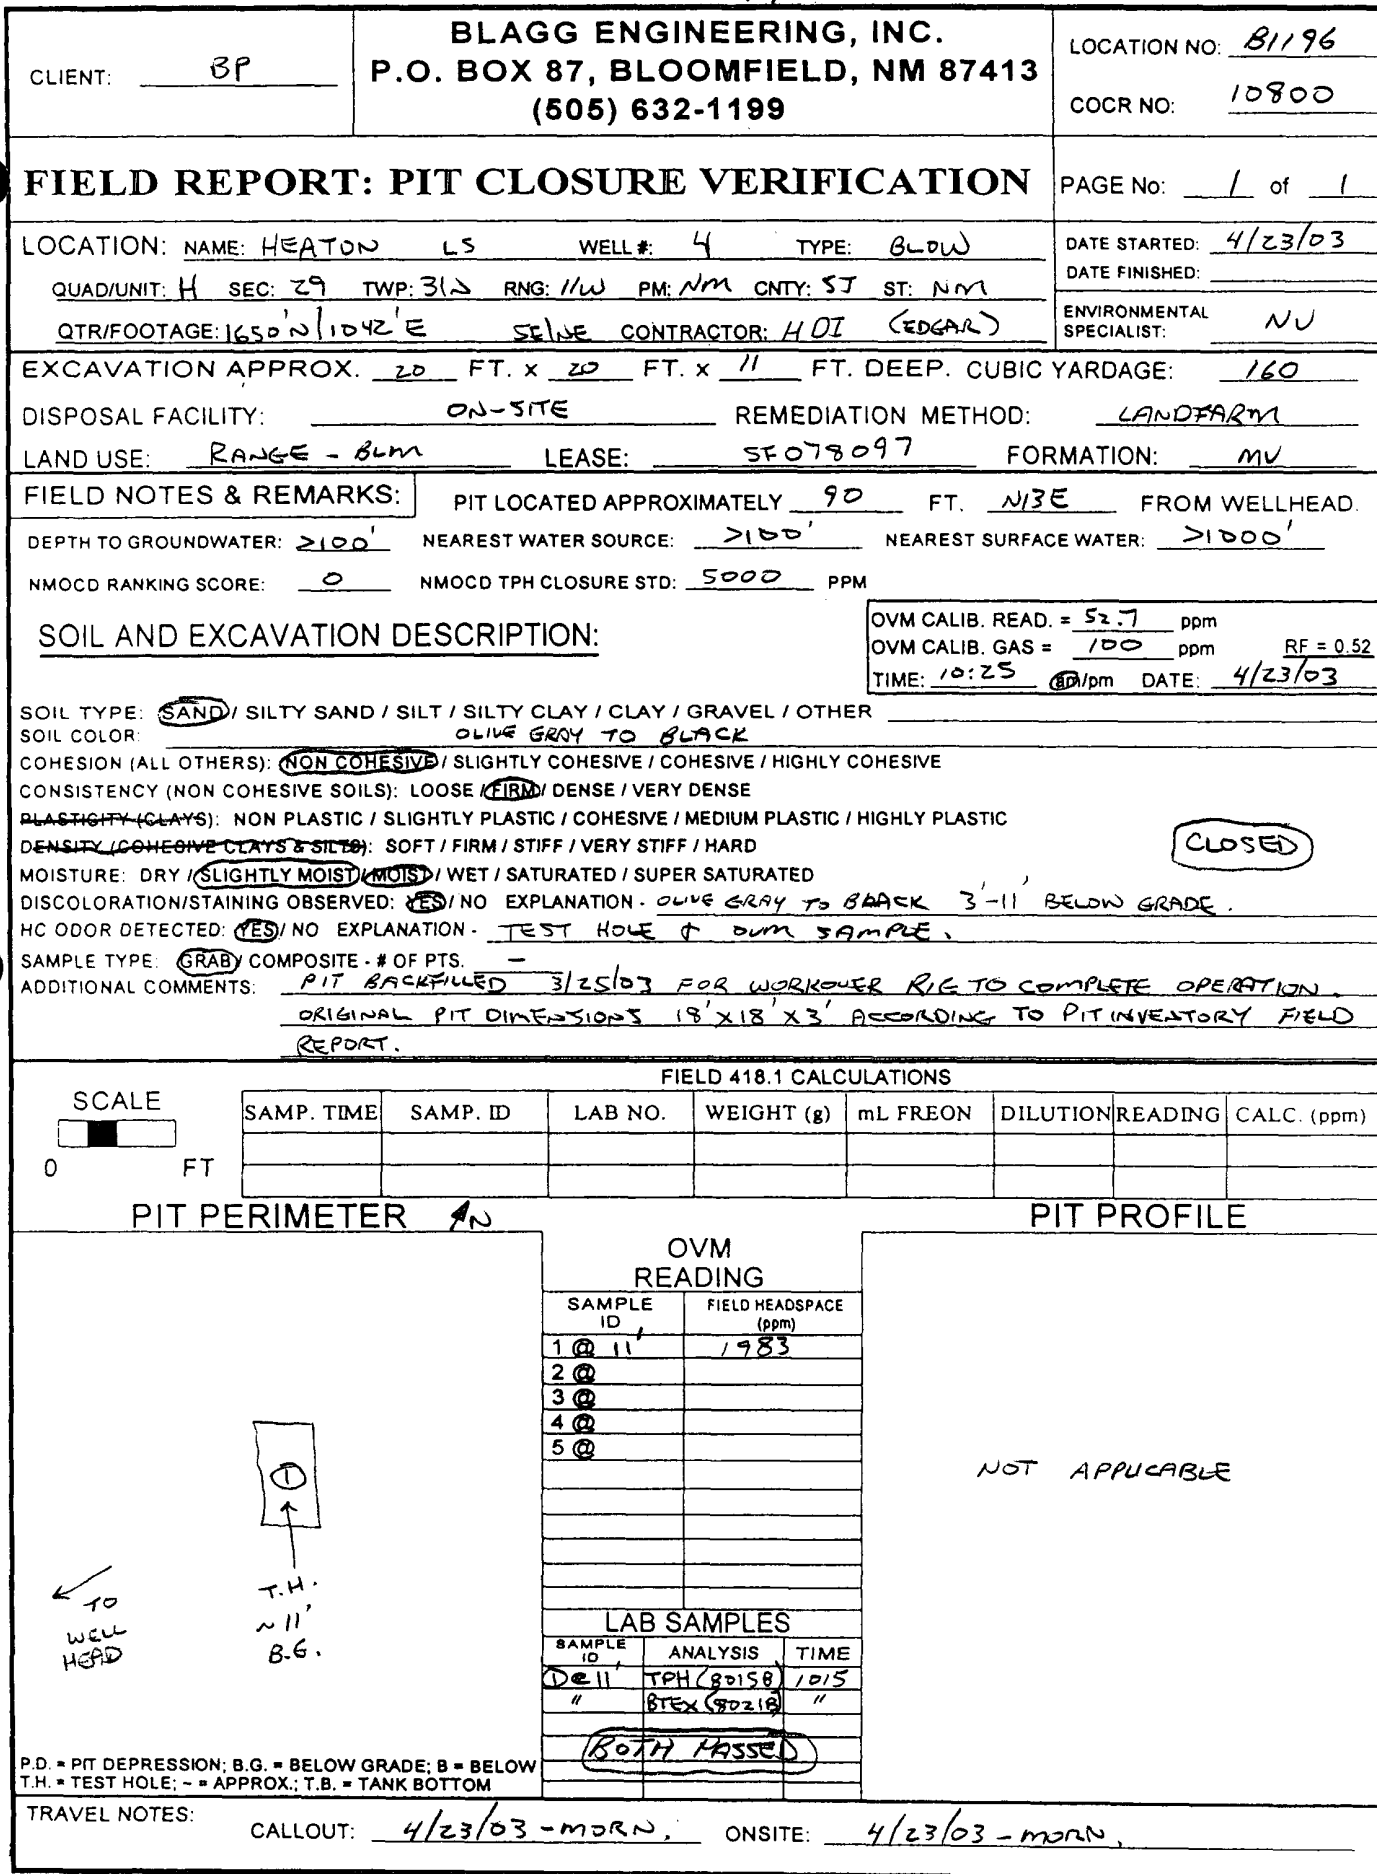 CLIENT: BP
BLAGG ENGINEERING, INC.
P.O. BOX 87, BLOOMFIELD, NM 87413
(505) 632-1199
LOCATION NO: B1196
COCR NO: 10800
FIELD REPORT: PIT CLOSURE VERIFICATION
PAGE No: 1 of 1
LOCATION: NAME: HEATON LS WELL #: 4 TYPE: BLOW
QUAD/UNIT: H SEC: 29 TWP: 31N RNG: 11W PM: NM CNTY: SJ ST: NM
QTR/FOOTAGE: 1650'N/1042'E SE/NE CONTRACTOR: HDI (EDGAR)
DATE STARTED: 4/23/03
DATE FINISHED:
ENVIRONMENTAL SPECIALIST: NV
EXCAVATION APPROX. 20 FT. x 20 FT. x 11 FT. DEEP. CUBIC YARDAGE: 160
DISPOSAL FACILITY: ON-SITE REMEDIATION METHOD: LANDFARM
LAND USE: RANGE - BLM LEASE: SF078097 FORMATION: MV
FIELD NOTES & REMARKS: PIT LOCATED APPROXIMATELY 90 FT. N13E FROM WELLHEAD.
DEPTH TO GROUNDWATER: >100' NEAREST WATER SOURCE: >100' NEAREST SURFACE WATER: >1000'
NMOCD RANKING SCORE: 0 NMOCD TPH CLOSURE STD: 5000 PPM
SOIL AND EXCAVATION DESCRIPTION:
OVM CALIB. READ. = 52.7 ppm
OVM CALIB. GAS = 100 ppm RF = 0.52
TIME: 10:25 am/pm DATE: 4/23/03
SOIL TYPE: SAND / SILTY SAND / SILT / SILTY CLAY / CLAY / GRAVEL / OTHER
SOIL COLOR: OLIVE GRAY TO BLACK
COHESION (ALL OTHERS): NON COHESIVE / SLIGHTLY COHESIVE / COHESIVE / HIGHLY COHESIVE
CONSISTENCY (NON COHESIVE SOILS): LOOSE / FIRM / DENSE / VERY DENSE
PLASTICITY (CLAYS): NON PLASTIC / SLIGHTLY PLASTIC / COHESIVE / MEDIUM PLASTIC / HIGHLY PLASTIC
DENSITY (COHESIVE CLAYS & SILTS): SOFT / FIRM / STIFF / VERY STIFF / HARD
CLOSED
MOISTURE: DRY / SLIGHTLY MOIST / MOIST / WET / SATURATED / SUPER SATURATED
DISCOLORATION/STAINING OBSERVED: YES / NO EXPLANATION - OLIVE GRAY TO BLACK 3'-11' BELOW GRADE.
HC ODOR DETECTED: YES / NO EXPLANATION - TEST HOLE & OVM SAMPLE.
SAMPLE TYPE: GRAB / COMPOSITE - # OF PTS. -
ADDITIONAL COMMENTS: PIT BACKFILLED 3/25/03 FOR WORKOVER RIG TO COMPLETE OPERATION.
ORIGINAL PIT DIMENSIONS 18'X18'X3' ACCORDING TO PIT INVENTORY FIELD
REPORT.
SCALE
0 FT
FIELD 418.1 CALCULATIONS
SAMP. TIME SAMP. ID LAB NO. WEIGHT (g) mL FREON DILUTION READING CALC. (ppm)
PIT PERIMETER N
PIT PROFILE
OVM
READING
SAMPLE ID FIELD HEADSPACE (ppm)
1 @ 11' 1983
2 @
3 @
4 @
5 @
1
T.H.
~ 11'
B.G.
TO
WELL
HEAD
NOT APPLICABLE
LAB SAMPLES
SAMPLE ID ANALYSIS TIME
1@11' TPH (8015B) 1015
" BTEX (8021B) "
BOTH PASSED
P.D. = PIT DEPRESSION; B.G. = BELOW GRADE; B = BELOW
T.H. = TEST HOLE; ~ = APPROX.; T.B. = TANK BOTTOM
TRAVEL NOTES: CALLOUT: 4/23/03 - MORN. ONSITE: 4/23/03 - MORN.